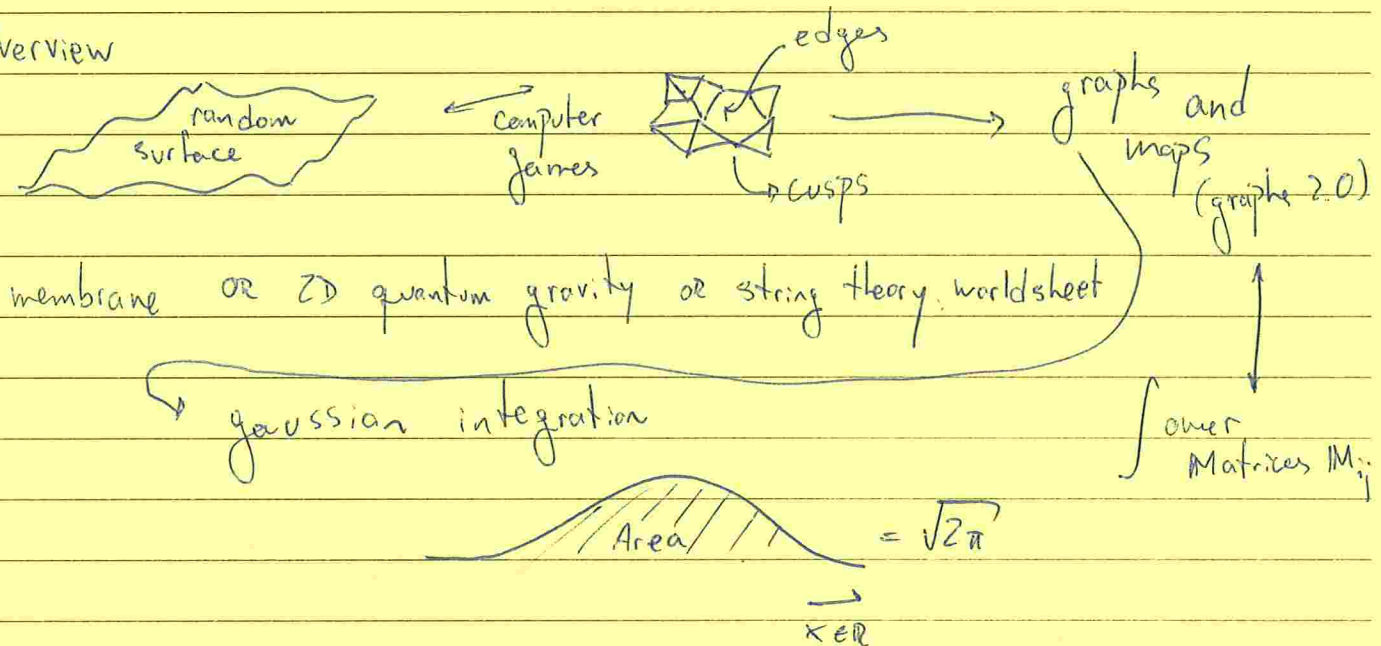 verview
edges
random
surface
computer
games
graphs and
maps
(graphs 2.0)
cusps
membrane OR 2D quantum gravity OR string theory worldsheet
gaussian integration
∫ over
Matrices Mij
Area = √2π
x ∈ ℝ